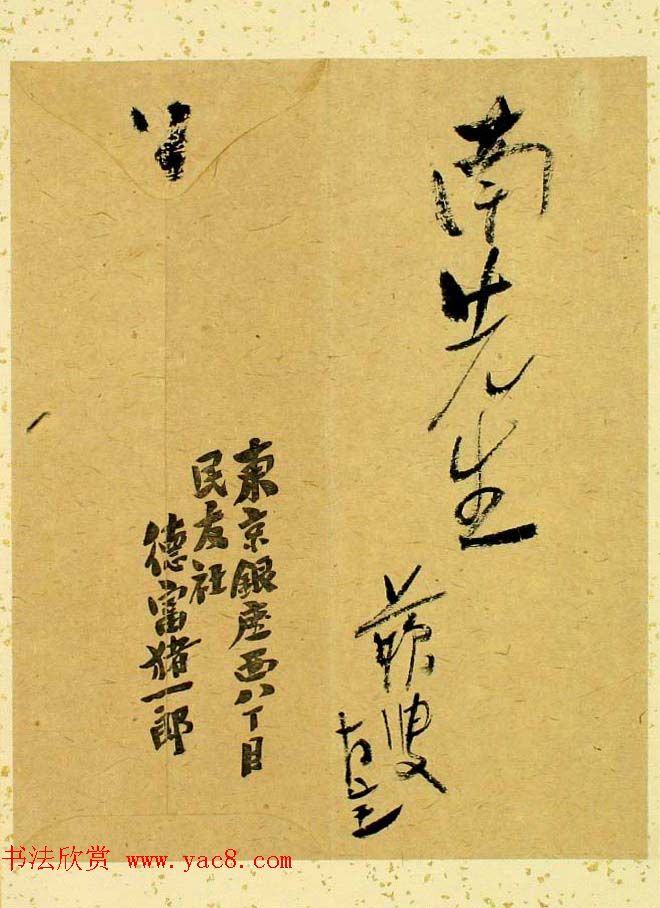 南先生
蘇叟
東京銀座西八丁目
民友社
德富猪一郎
书法欣赏 www.yac8.com